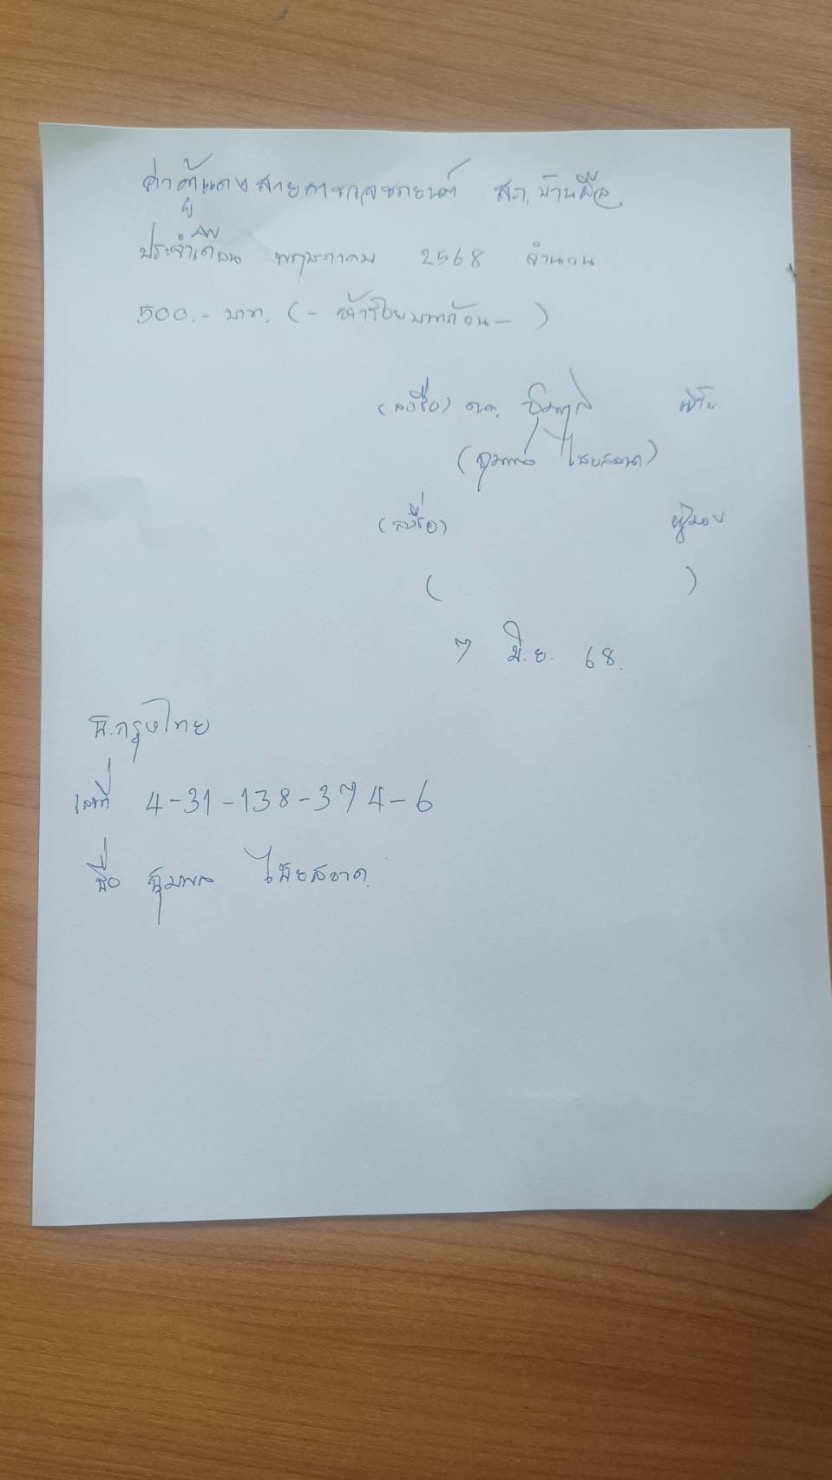 ค่าตู้แดงสายตรวจรถยนต์ สภ.บ้านผือ
ประจำเดือน พฤษภาคม 2568 จำนวน
500.- บาท. (- ห้าร้อยบาทถ้วน -)
(ลงชื่อ) ด.ต. ชุมพล ผู้รับ
(ชุมพล ไชยสอาด)
(ลงชื่อ) ผู้มอบ
( )
7 มิ.ย. 68.
ธ.กรุงไทย
เลขที่ 4-31-138-374-6
ชื่อ ชุมพล ไชยสอาด